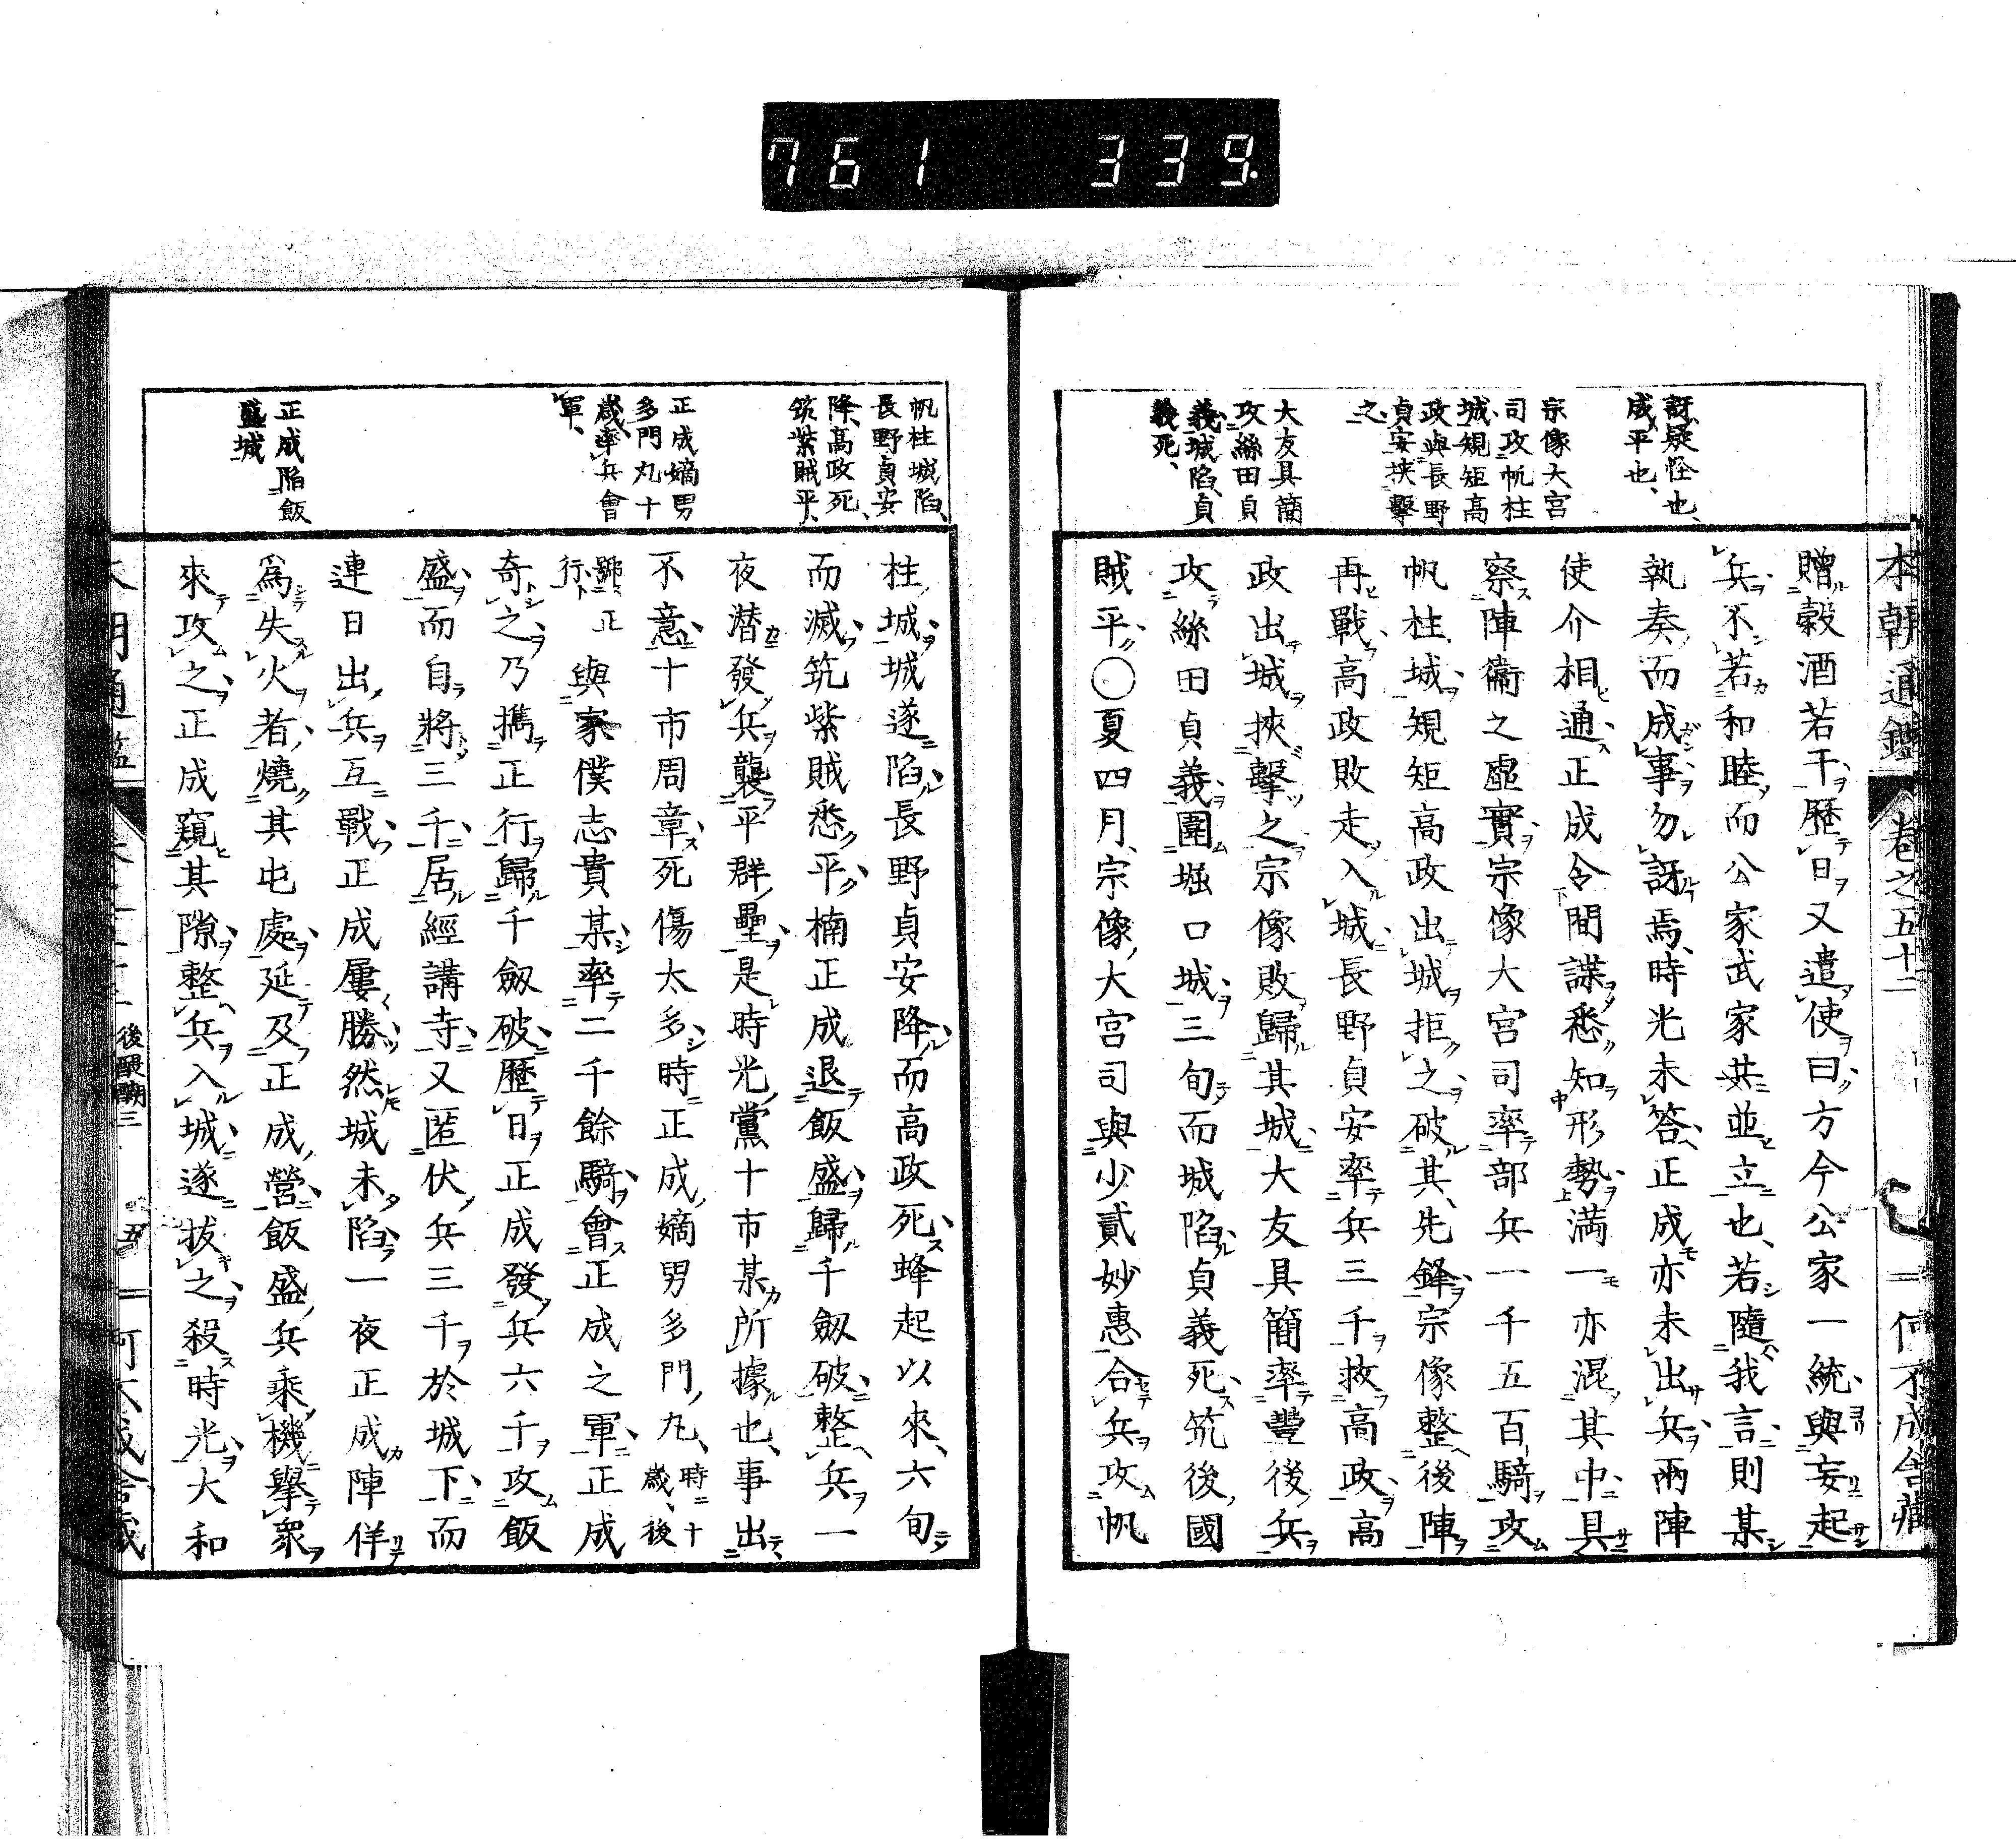 761 339.
本朝通鑑 卷之五十二 何不成舍藏
訝疑怪也、
成平也、
宗像大宮
司攻帆柱
城規矩高
政與長野
貞安挾擊
之
大友具簡
攻絲田貞
義城陷貞
義死、
贈穀酒若干歷日又遣使曰方今公家一統與妄起
兵不若和睦而公家武家共並立也、若隨我言則某
執奏而成事勿訝焉、時光未答、正成亦未出兵兩陣
使介相通正成令間諜悉知形勢滿一亦混其中具
察陣衞之虛實宗像大宮司率部兵一千五百騎攻
帆柱城規矩高政出城拒之破其先鋒宗像整後陣
再戰高政敗走入城長野貞安率兵三千救高政高
政出城挾擊之宗像敗歸其城大友具簡率豐後兵
攻絲田貞義圍堀口城三旬而城陷貞義死筑後國
賊平〇夏四月、宗像大宮司與少貳妙惠合兵攻帆
帆柱城陷、
長野貞安
降、高政死、
筑紫賊平、
正成嫡男
多門丸十
歲、率兵會
軍、
正成陷飯
盛城
柱城城遂陷長野貞安降而高政死蜂起以來、六旬
而滅筑紫賊悉平楠正成退飯盛歸千劔破整兵一
夜潛發兵襲平群壘是時光黨十市某所據也、事出
不意十市周章死傷太多時正成嫡男多門丸、時十歲、後
號正行與家僕志貴某率二千餘騎會正成之軍正成
奇之乃攜正行歸千劔破歷日正成發兵六千攻飯
盛而自將三千居經講寺又匿伏兵三千於城下而
連日出兵互戰正成屢勝然城未陷一夜正成陣佯
爲失火者燒其屯處延及正成營飯盛兵乘機擧衆
來攻之正成窺其隙整兵入城遂拔之殺時光大和
後醍醐三 五